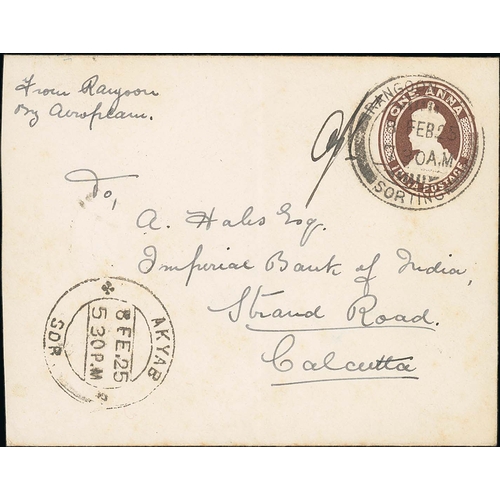 From Rangoon
By Aeroplane.
RANGOON
ONE ANNA
FEB 25
0 A.M
INDIA POSTAGE
SORTING
To,
A. Hales Esq.
Imperial Bank of India,
Strand Road.
Calcutta
AKYAB
8 FE.25
5.30 P.M
SDR